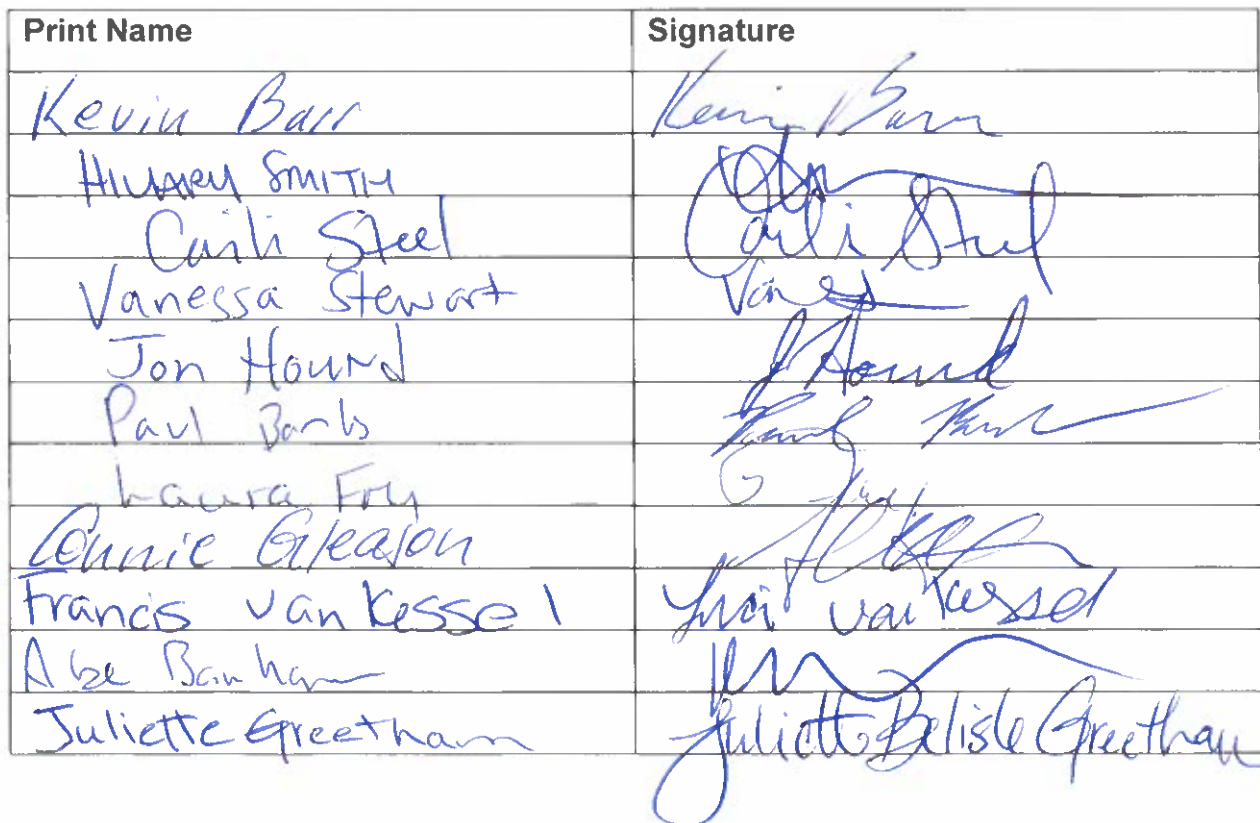 Print Name Signature
Kevin Barr Kevin Barr
HILLARY SMITH
Carli Steel Carli Steel
Vanessa Stewart
Jon Hound J Hound
Paul Banks Paul
Laura Fry
Connie Gleason
Francis van Kessel van Kessel
Abe Banham
Juliette Greetham Juliette Belisle Greetham